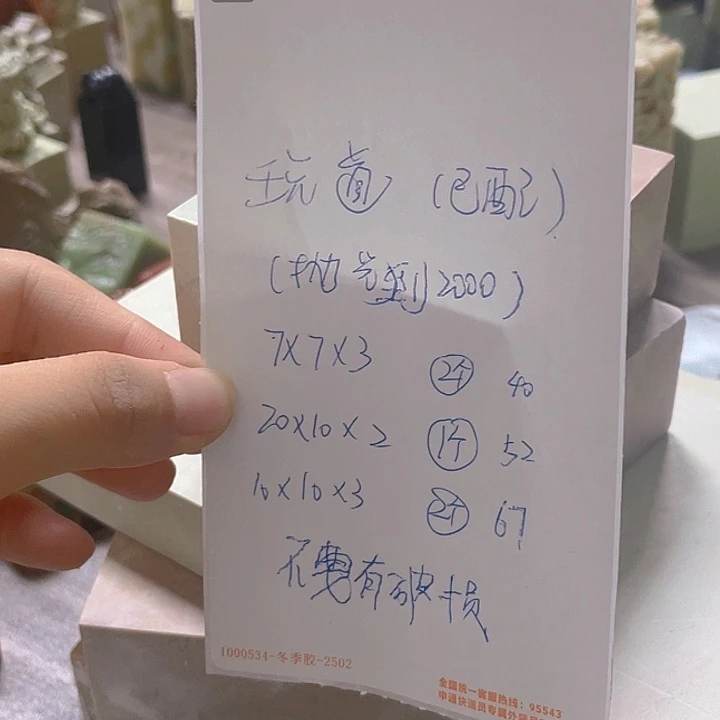 玩 (已配)
(抛光到2000)
7X7X3 2个 40
20X10X2 1个 52
10X10X3 2个 67
不要有破损
1000534-冬季胶-2502
全国统一客服热线：95543
申通快递员专属外